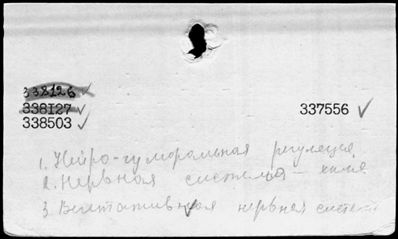 338126 ✓
338127 ✓
338503 ✓
337556 ✓
1. Нейро-гуморальная регуляция
2. Нервная система - химия
3. Вегетативная нервная система